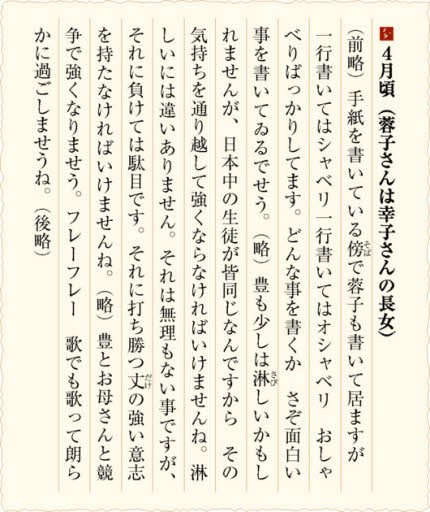 4月頃（蓉子さんは幸子さんの長女）
（前略）手紙を書いている傍で蓉子も書いて居ますが
一行書いてはシャベリ一行書いてはオシャベリ　おしゃ
べりばっかりしてます。どんな事を書くか　さぞ面白い
事を書いてゐるでせう。（略）豊も少しは淋しいかもし
れませんが、日本中の生徒が皆同じなんですから　その
気持ちを通り越して強くならなければいけませんね。淋
しいには違いありません。それは無理もない事ですが、
それに負けては駄目です。それに打ち勝つ丈の強い意志
を持たなければいけませんね。（略）豊とお母さんと競
争で強くなりませう。フレーフレー　歌でも歌って朗ら
かに過ごしませうね。（後略）